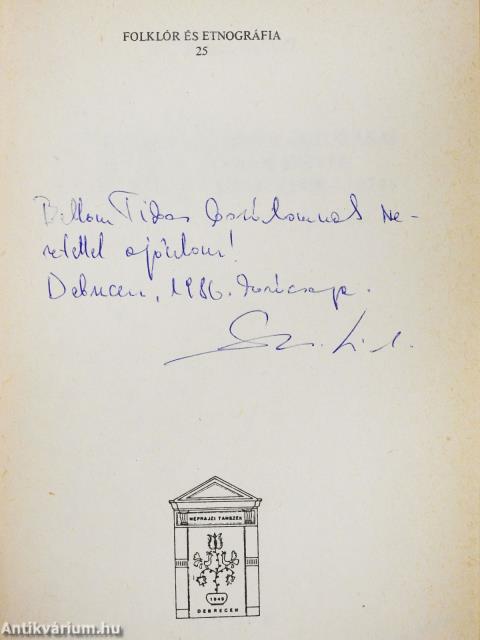 FOLKLÓR ÉS ETNOGRÁFIA
25
Bellon Tibor barátomnak sze-
retettel ajánlom!
Debrecen, 1986. karácsonya.
NÉPRAJZI TANSZÉK
1949
DEBRECEN
Antikvárium.hu